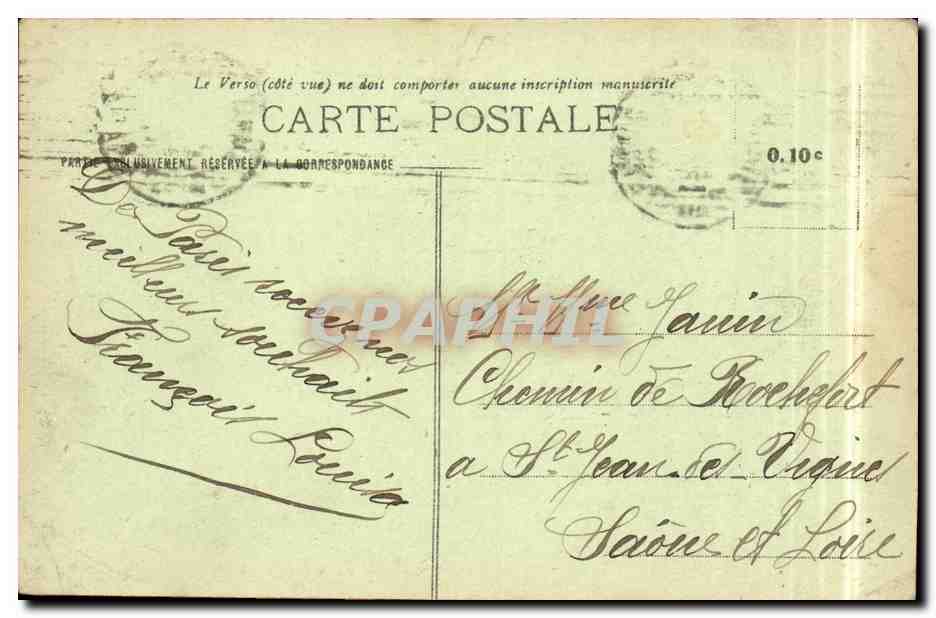 Le Verso (côté vue) ne doit comporter aucune inscription manuscrite
CARTE POSTALE
PARTIE EXCLUSIVEMENT RÉSERVÉE A LA CORRESPONDANCE
0.10c
De Paris recevez nos
meilleurs souhaits
François Louisa
CPAPHIL
Mme Janin
Chemin de Rochefort
a St Jean-des-Vignes
Saône et Loire